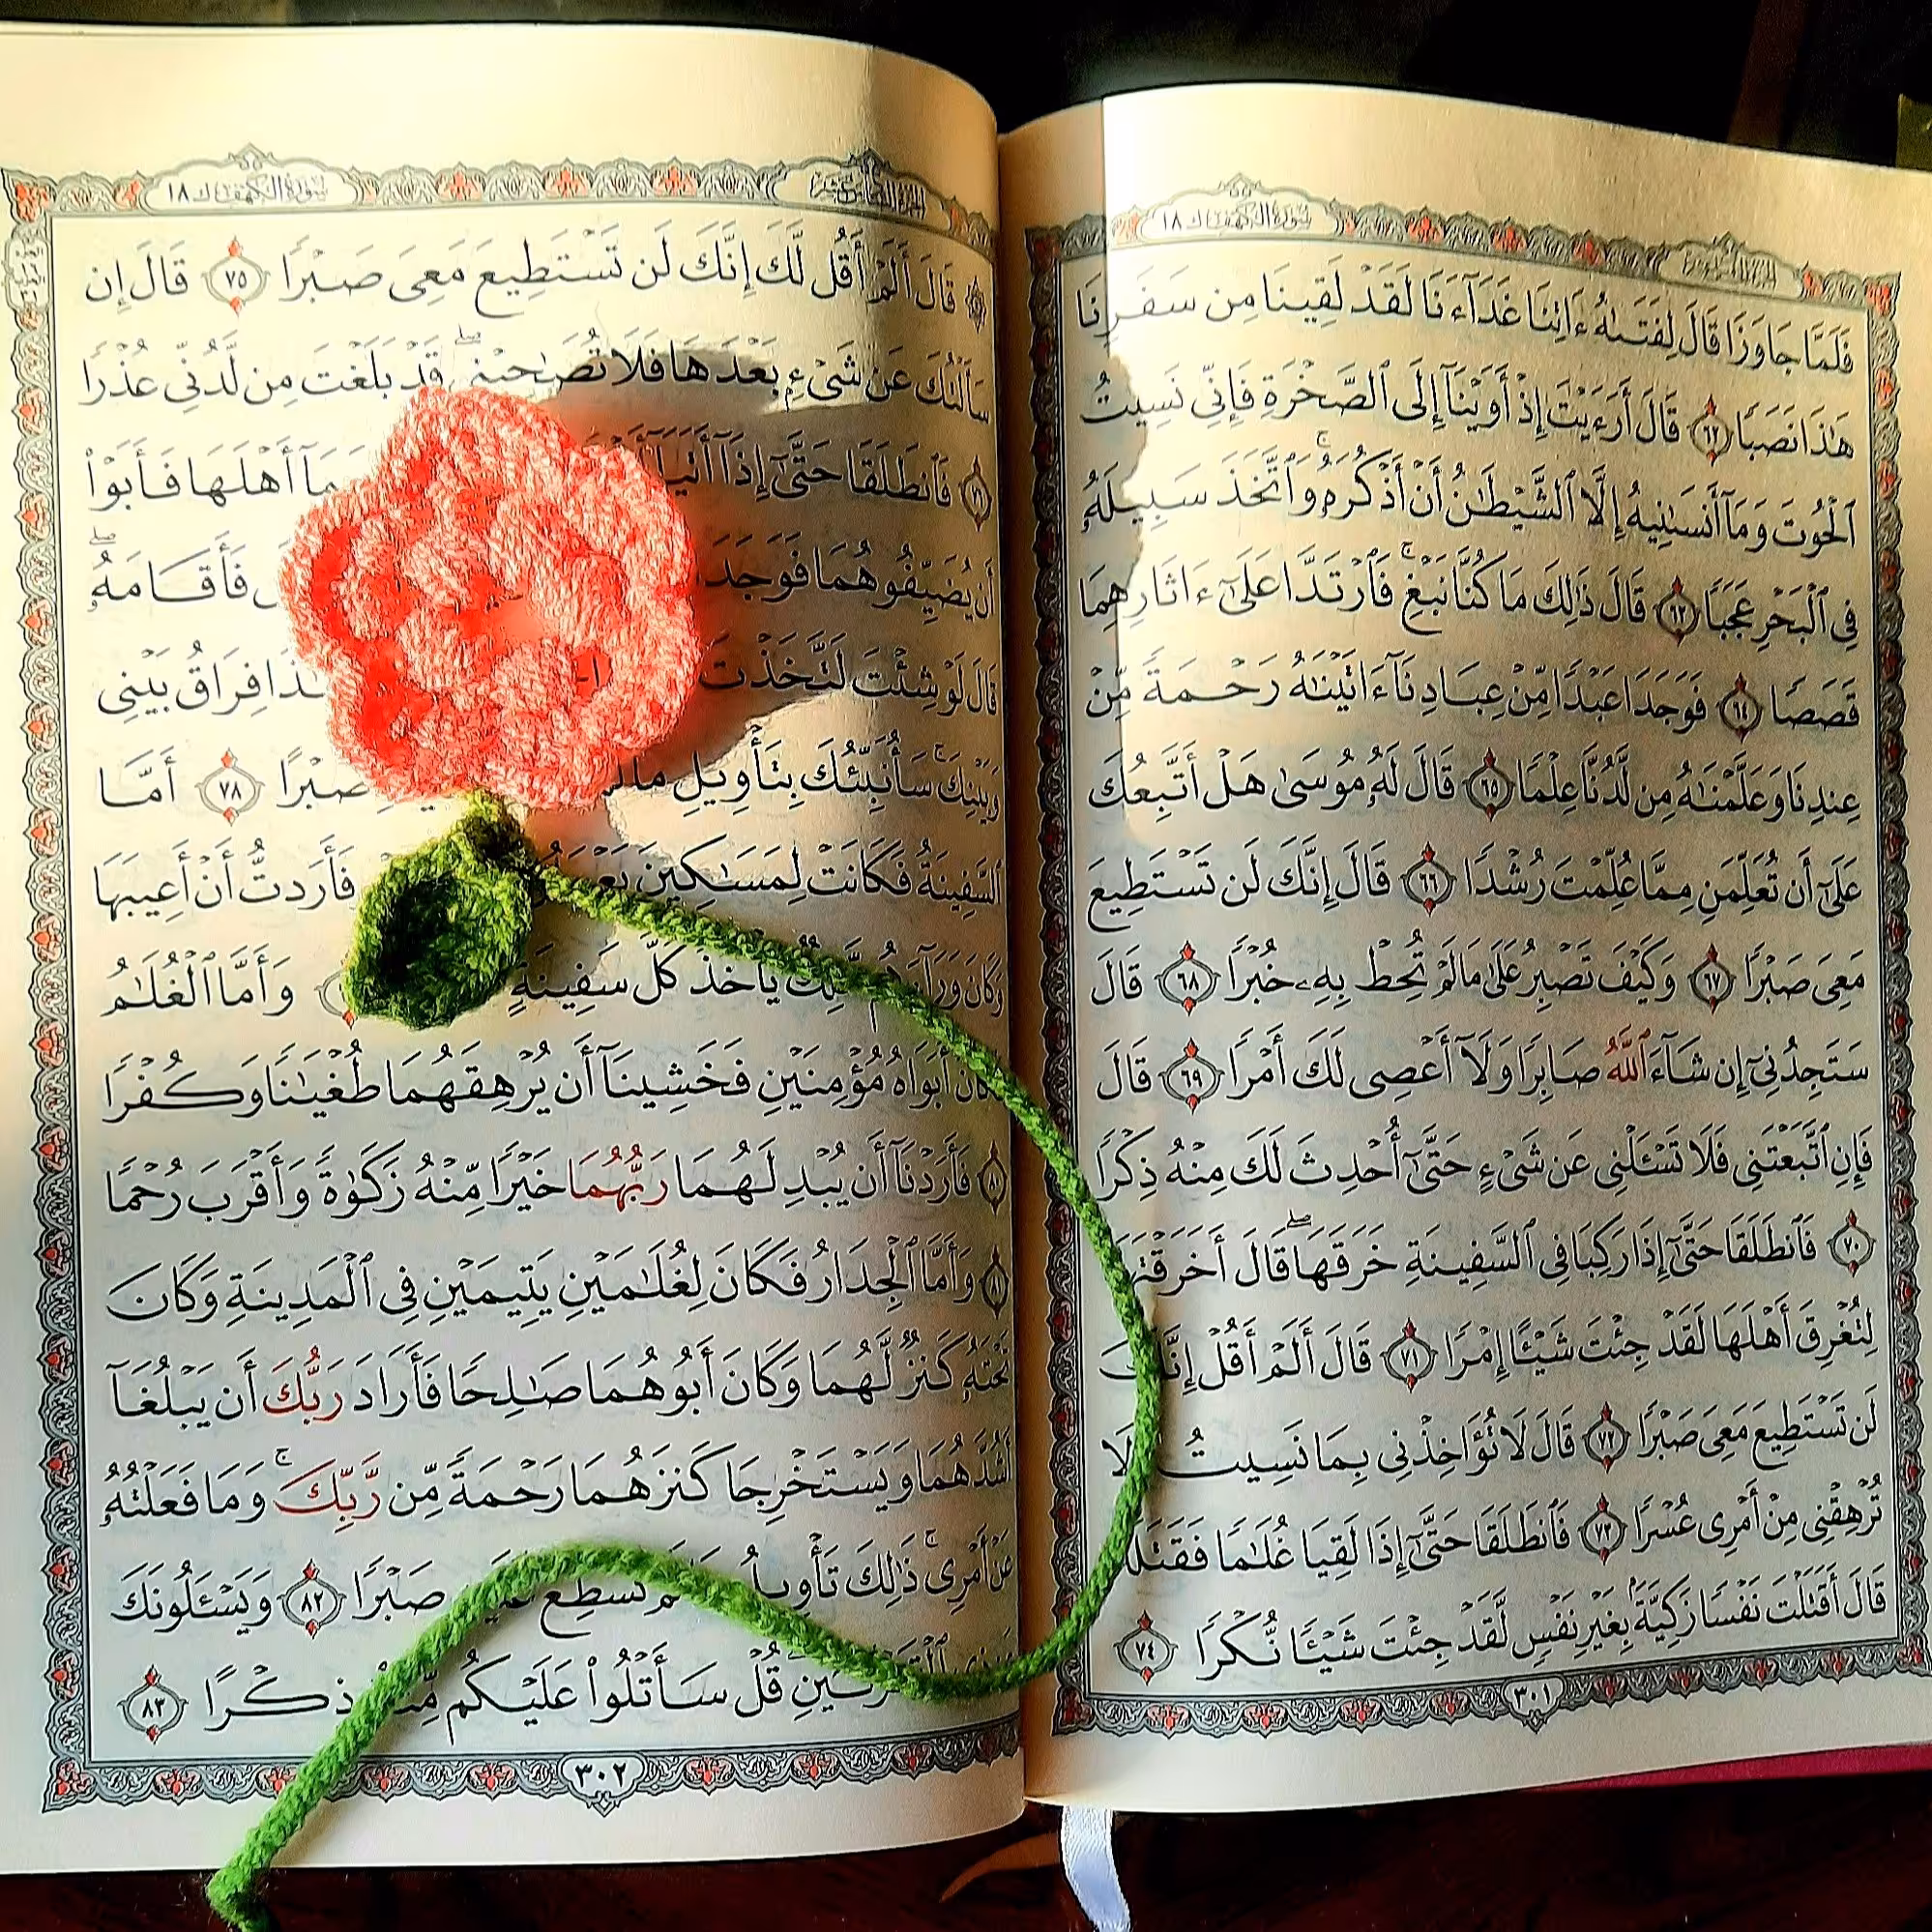 سورة الكهف ١٨
فَلَمَّا جَاوَزَا قَالَ لِفَتَىٰهُ ءَاتِنَا غَدَآءَنَا لَقَدْ لَقِينَا مِن سَفَرِنَا
هَٰذَا نَصَبًا ﴿٦٢﴾ قَالَ أَرَءَيْتَ إِذْ أَوَيْنَآ إِلَى ٱلصَّخْرَةِ فَإِنِّى نَسِيتُ
ٱلْحُوتَ وَمَآ أَنسَىٰنِيهُ إِلَّا ٱلشَّيْطَٰنُ أَنْ أَذْكُرَهُۥ ۚ وَٱتَّخَذَ سَبِيلَهُۥ
فِى ٱلْبَحْرِ عَجَبًا ﴿٦٣﴾ قَالَ ذَٰلِكَ مَا كُنَّا نَبْغِ ۚ فَٱرْتَدَّا عَلَىٰٓ ءَاثَارِهِمَا
قَصَصًا ﴿٦٤﴾ فَوَجَدَا عَبْدًا مِّنْ عِبَادِنَآ ءَاتَيْنَٰهُ رَحْمَةً مِّنْ
عِندِنَا وَعَلَّمْنَٰهُ مِن لَّدُنَّا عِلْمًا ﴿٦٥﴾ قَالَ لَهُۥ مُوسَىٰ هَلْ أَتَّبِعُكَ
عَلَىٰٓ أَن تُعَلِّمَنِ مِمَّا عُلِّمْتَ رُشْدًا ﴿٦٦﴾ قَالَ إِنَّكَ لَن تَسْتَطِيعَ
مَعِىَ صَبْرًا ﴿٦٧﴾ وَكَيْفَ تَصْبِرُ عَلَىٰ مَا لَمْ تُحِطْ بِهِۦ خُبْرًا ﴿٦٨﴾ قَالَ
سَتَجِدُنِىٓ إِن شَآءَ ٱللَّهُ صَابِرًا وَلَآ أَعْصِى لَكَ أَمْرًا ﴿٦٩﴾ قَالَ
فَإِنِ ٱتَّبَعْتَنِى فَلَا تَسْـَٔلْنِى عَن شَىْءٍ حَتَّىٰٓ أُحْدِثَ لَكَ مِنْهُ ذِكْرًا
﴿٧٠﴾ فَٱنطَلَقَا حَتَّىٰٓ إِذَا رَكِبَا فِى ٱلسَّفِينَةِ خَرَقَهَا ۖ قَالَ أَخَرَقْتَهَا
لِتُغْرِقَ أَهْلَهَا لَقَدْ جِئْتَ شَيْـًٔا إِمْرًا ﴿٧١﴾ قَالَ أَلَمْ أَقُلْ إِنَّكَ
لَن تَسْتَطِيعَ مَعِىَ صَبْرًا ﴿٧٢﴾ قَالَ لَا تُؤَاخِذْنِى بِمَا نَسِيتُ وَلَا
تُرْهِقْنِى مِنْ أَمْرِى عُسْرًا ﴿٧٣﴾ فَٱنطَلَقَا حَتَّىٰٓ إِذَا لَقِيَا غُلَٰمًا فَقَتَلَهُۥ
قَالَ أَقَتَلْتَ نَفْسًا زَكِيَّةًۢ بِغَيْرِ نَفْسٍ لَّقَدْ جِئْتَ شَيْـًٔا نُّكْرًا ﴿٧٤﴾
٣٠١
الجزء السادس عشر سورة الكهف ١٨
قَالَ أَلَمْ أَقُل لَّكَ إِنَّكَ لَن تَسْتَطِيعَ مَعِىَ صَبْرًا ﴿٧٥﴾ قَالَ إِن
سَأَلْتُكَ عَن شَىْءٍۭ بَعْدَهَا فَلَا تُصَٰحِبْنِى ۖ قَدْ بَلَغْتَ مِن لَّدُنِّى عُذْرًا
﴿٧٦﴾ فَٱنطَلَقَا حَتَّىٰٓ إِذَآ أَتَيَآ أَهْلَهَا فَأَبَوْا۟
أَن يُضَيِّفُوهُمَا فَوَجَدَا فَأَقَامَهُۥ ۖ
قَالَ لَوْ شِئْتَ لَتَّخَذْتَ هَٰذَا فِرَاقُ بَيْنِى
وَبَيْنِكَ ۚ سَأُنَبِّئُكَ بِتَأْوِيلِ مَا لَمْ صَبْرًا ﴿٧٨﴾ أَمَّا
ٱلسَّفِينَةُ فَكَانَتْ لِمَسَٰكِينَ يَعْمَلُونَ فَأَرَدتُّ أَنْ أَعِيبَهَا
وَكَانَ وَرَآءَهُم مَّلِكٌ يَأْخُذُ كُلَّ سَفِينَةٍ وَأَمَّا ٱلْغُلَٰمُ
فَكَانَ أَبَوَاهُ مُؤْمِنَيْنِ فَخَشِينَآ أَن يُرْهِقَهُمَا طُغْيَٰنًا وَكُفْرًا
﴿٨٠﴾ فَأَرَدْنَآ أَن يُبْدِلَهُمَا رَبُّهُمَا خَيْرًا مِّنْهُ زَكَوٰةً وَأَقْرَبَ رُحْمًا
﴿٨١﴾ وَأَمَّا ٱلْجِدَارُ فَكَانَ لِغُلَٰمَيْنِ يَتِيمَيْنِ فِى ٱلْمَدِينَةِ وَكَانَ
تَحْتَهُۥ كَنزٌ لَّهُمَا وَكَانَ أَبُوهُمَا صَٰلِحًا فَأَرَادَ رَبُّكَ أَن يَبْلُغَآ
أَشُدَّهُمَا وَيَسْتَخْرِجَا كَنزَهُمَا رَحْمَةً مِّن رَّبِّكَ ۚ وَمَا فَعَلْتُهُۥ
عَنْ أَمْرِى ۚ ذَٰلِكَ تَأْوِيلُ مَا لَمْ تَسْطِع عَّلَيْهِ صَبْرًا ﴿٨٢﴾ وَيَسْـَٔلُونَكَ
عَن ذِى ٱلْقَرْنَيْنِ ۖ قُلْ سَأَتْلُوا۟ عَلَيْكُم مِّنْهُ ذِكْرًا ﴿٨٣﴾
٣٠٢